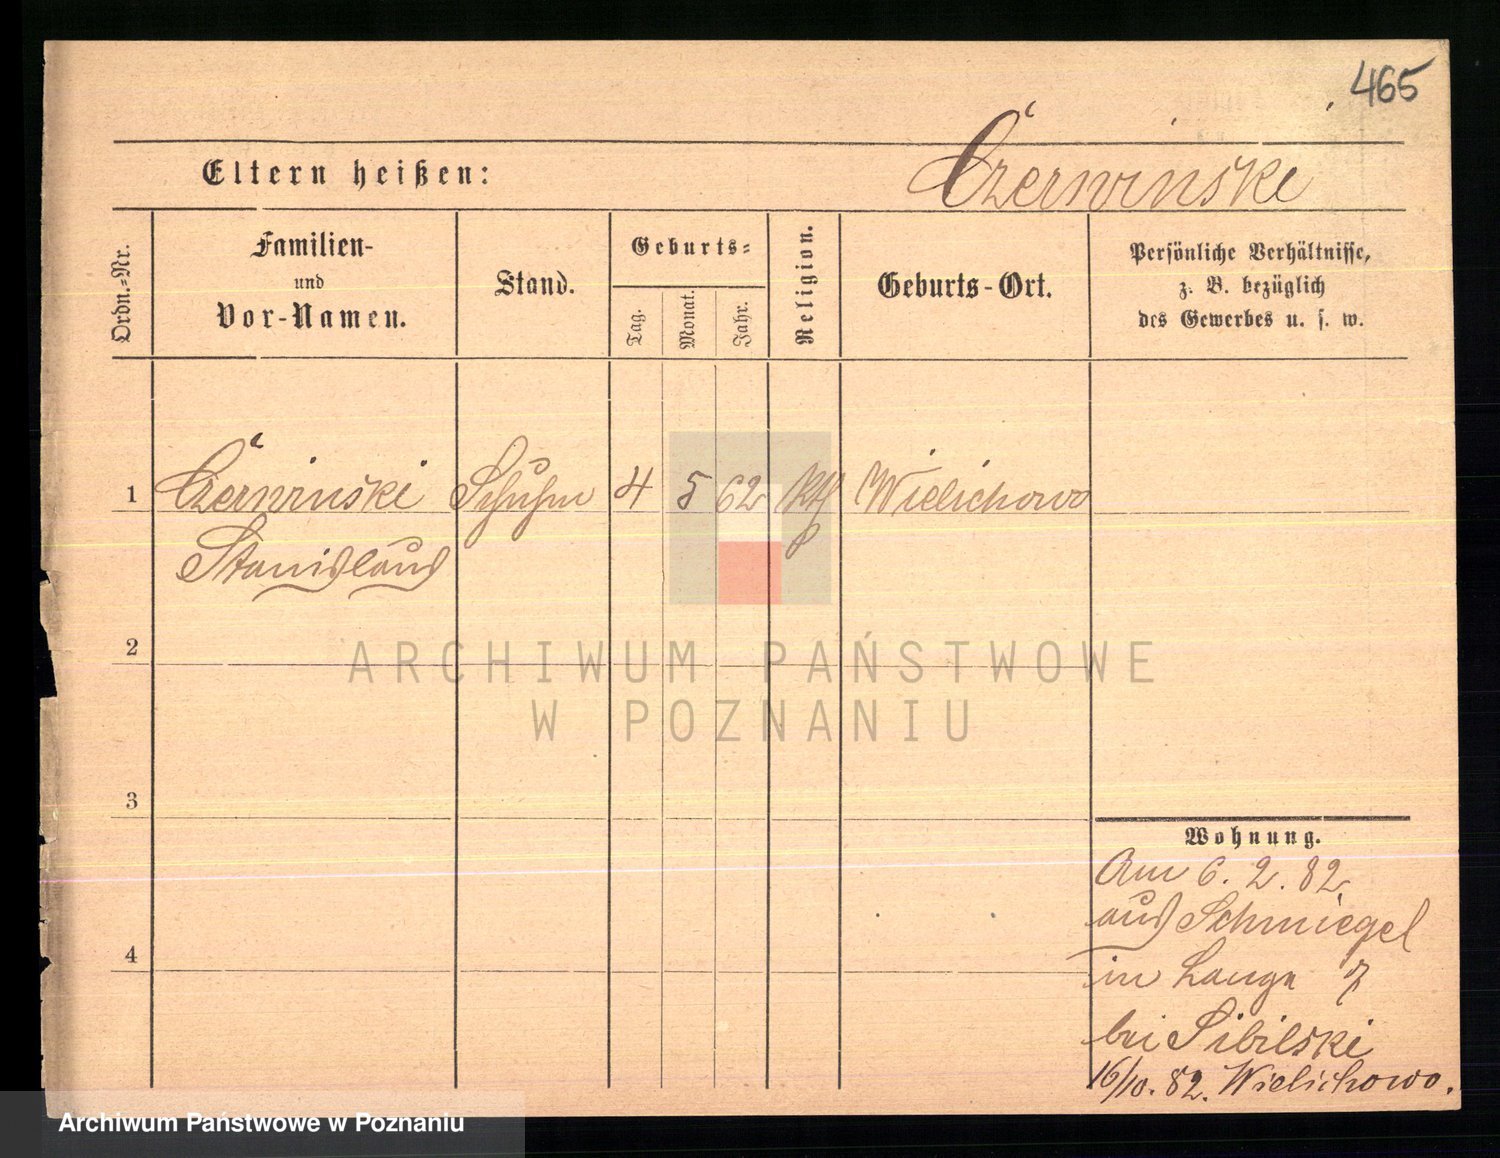 465
Eltern heißen:
Czerwinski
Ordn.-Nr.
Familien-
und
Vor-Namen.
Stand.
Geburts=
Tag.
Monat.
Jahr.
Religion.
Geburts-Ort.
Persönliche Verhältnisse,
z. B. bezüglich
des Gewerbes u. s. w.
1 Czerwinski Schuhm 4 5 62 kth Wielichowo
Stanislaus
2
3
4
Wohnung.
Am 6. 2. 82.
aus Schmiegel
in Lange 7
bei Sibilski
16/10. 82. Wielichowo.
ARCHIWUM PAŃSTWOWE
W POZNANIU
Archiwum Państwowe w Poznaniu